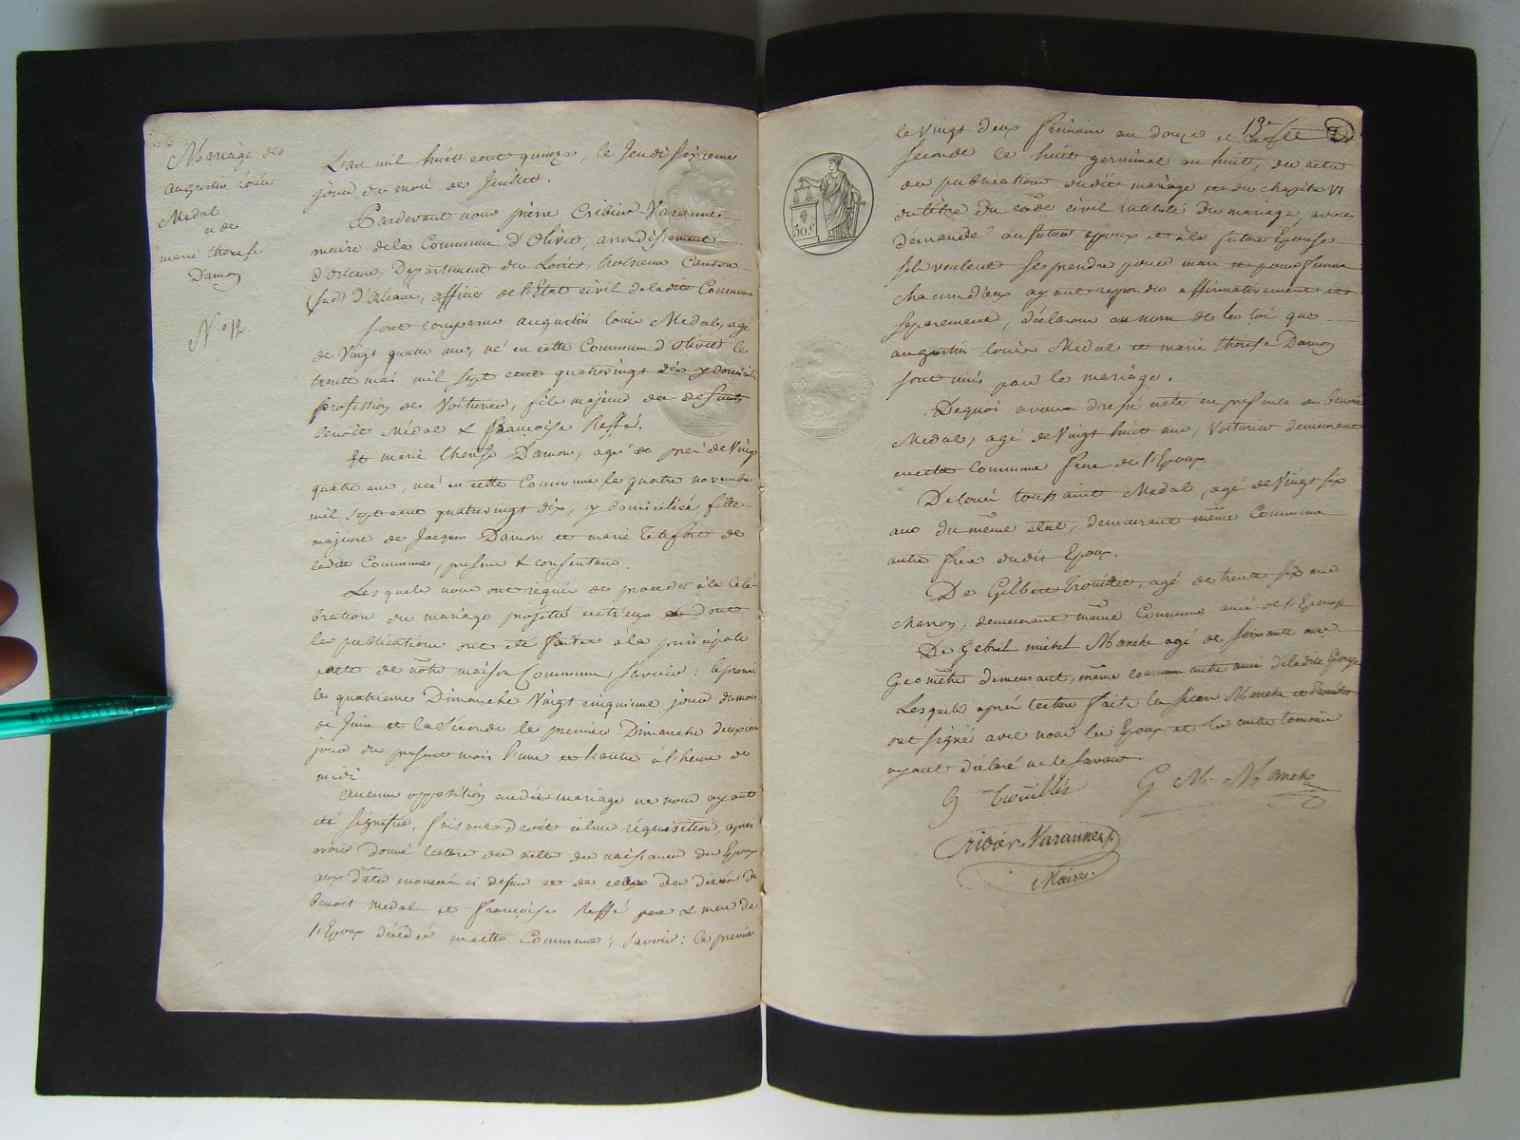 Mariage de
augustin louis
Medal
et de
marie therese
Damon
N.º 12.
L'an mil huit cent quinze, le Jeudi Sixieme
jour du mois de Juillet.
Pardevant nous pierre Cribier-Varannes
maire de la Commune d'Olivet, arrondissement
d'orleans, Departement du Loiret, Canton
(Sud) d'orleans, officier de l'état civil de la dite Commune
Sont comparus augustin louis Medal, agé
de Vingt quatre ans, né en cette Commune d'olivet le
trente mai mil Sept cent quatrevingt dix y domicilié
profession de Voiturier, fils majeur de defunts
Benoit Médal & françoise Reffé.
Et marie therese Damon, agée de près de Vingt
quatre ans, née en cette Commune le quatre novembre
mil Sept cent quatrevingt dix, y domiciliée, fille
majeure de Jacques Damon et marie de
la dite Commune, present & consentans.
Lesquels nous ont requis de proceder à la Celé-
bration du mariage projetté entr'eux & dont
les publications ont été faites a la principale
porte de nôtre maison Commune, Savoir: la premiere
le quatrieme Dimanche Vingt cinquieme jour du mois
de Juin et la Seconde le premier Dimanche deuxieme
jour du present mois l'une et l'autre à l'heure de
midi
aucune opposition audit mariage ne nous ayant
été Signifiée, faisant droit à leur réquisition, après
avoir donné lecture des actes de naissance des Epoux
aux dates enoncées ci dessus et de ceux du décès de
Benoit Medal et françoise Reffé pere & mere de
l'Epoux décédés en cette Commune; Savoir: le premier
13e
le Vingt deux frimaire an douze et la
Seconde le huit germinal an huit, des actes
de publications dudit mariage et du chapitre VI
du titre du code civil intitulé du mariage, avons
demandé au futur epoux et à la future Epouse
S'ils veulent Se prendre pour mari et pour femme
chacun d'eux ayant repondu affirmativement et
Séparement, déclarons au nom de la loi que
augustin louis Medal et marie therese Damon
Sont unis par le mariage.
De quoi avons dressé acte en presence de Benoit
Medal, agé de Vingt huit ans, Voiturier demeurant
en cette Commune frere de l'Epoux
De louis toussaint Medal, agé de Vingt six
ans du même état, demeurant même Commune
autre frere dudit Epoux.
De Gilbert Trouillet, agé de trente six ans
charron, demeurant même Commune ami de l'Epoux
De michel Maneke agé de Soixante ans
Geomètre demeurant même commune ami de la dite Epouse
Lesquels après lecture faite les Sieurs Maneke et
ont Signé avec nous les Epoux et les autres temoins
ayant déclaré ne le Savoir.
G Trouillet
G M Maneke
Cribier Varannes
Maire.
50.c